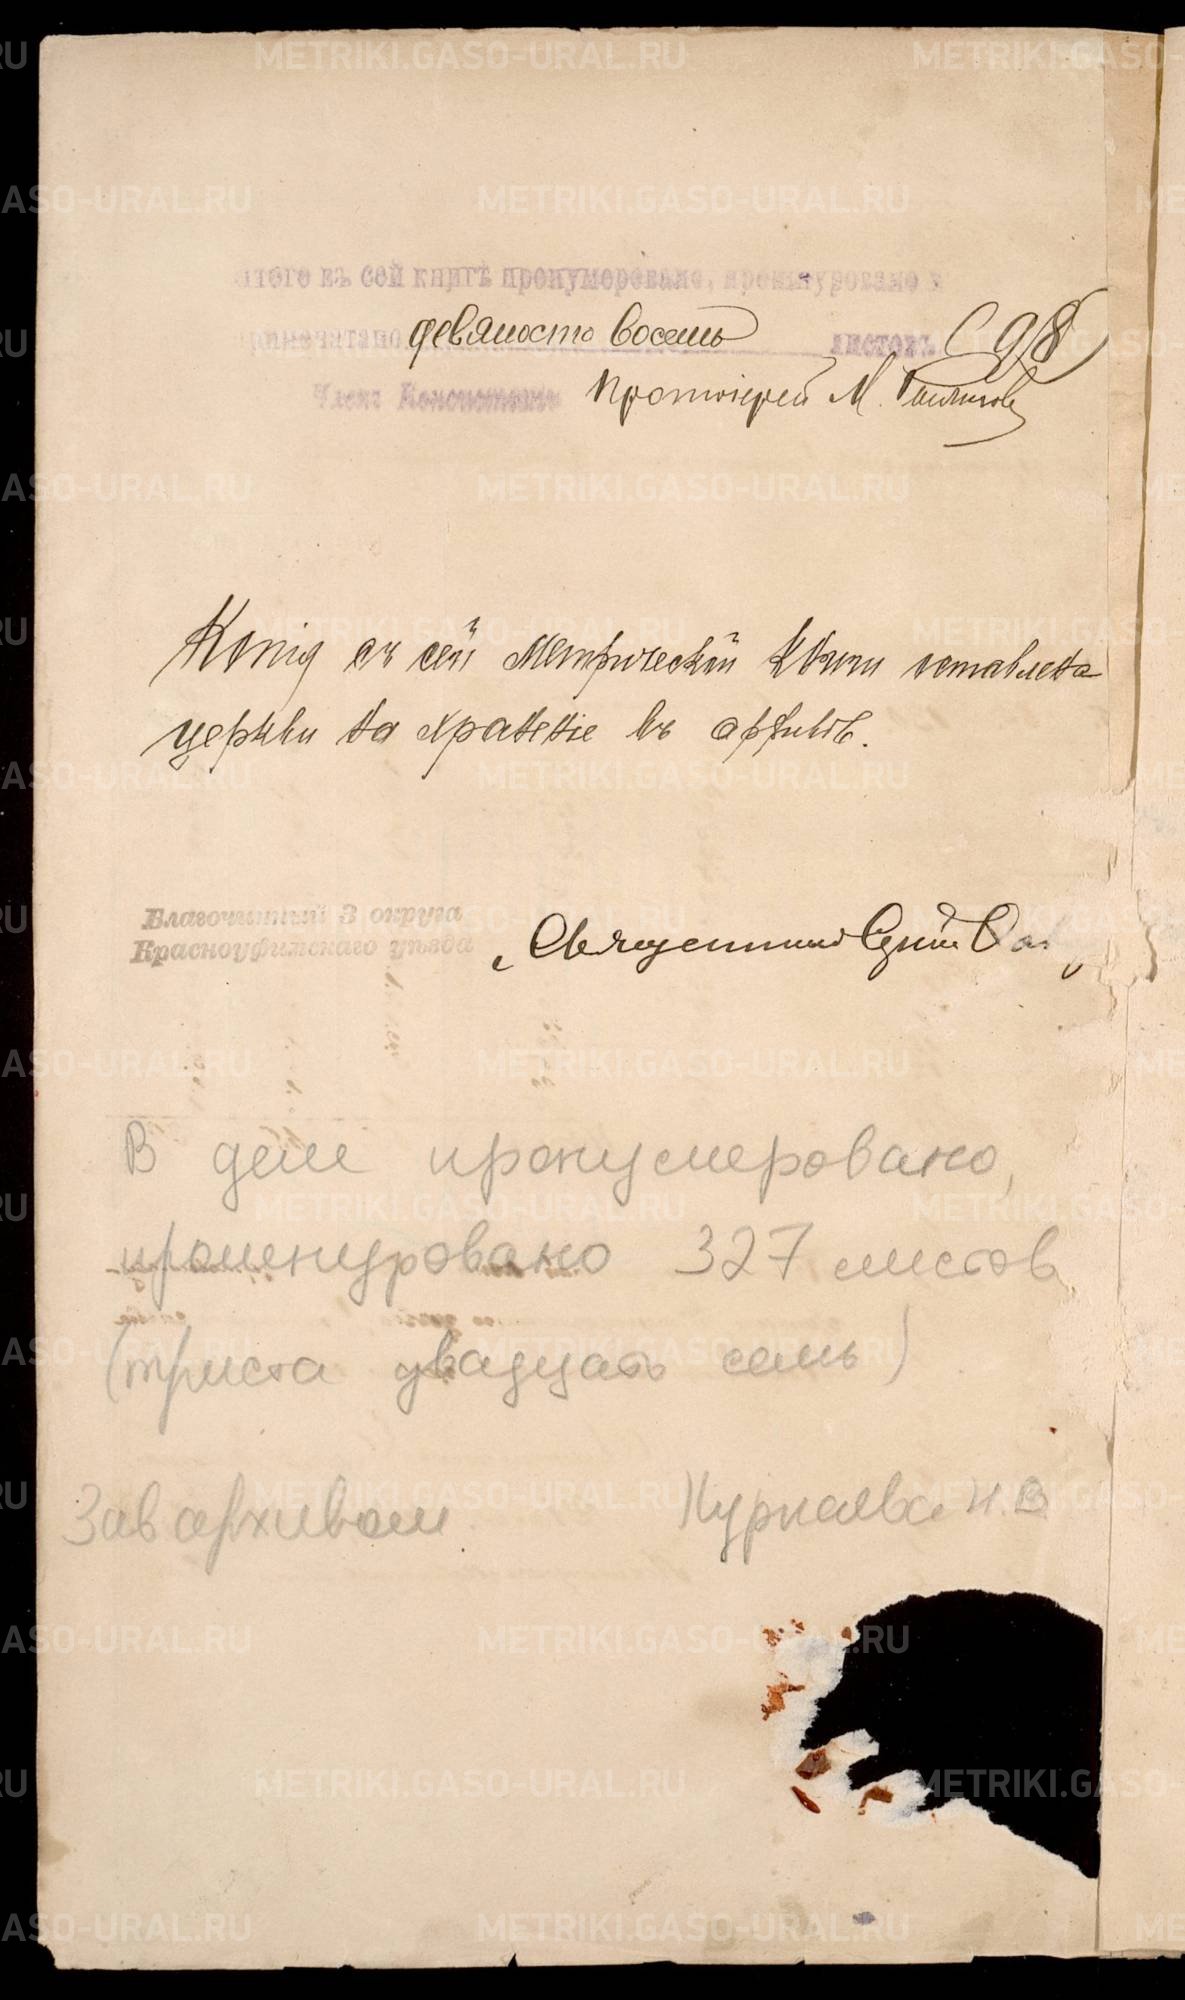 итого въ сей книгѣ пронумеровано, прошнуровано и
припечатано девяносто восемь листовъ (98)
Членъ Консисторіи Протоіерей М.
Копія съ сей метрической книги оставлена
церкви на храненіе въ архивѣ.
Благочинный 3 округа
Красноуфимскаго уѣзда
Священникъ
В деле пронумеровано,
прошнуровано 327 листов
(триста двадцать семь)
Зав архивом Н.В.
METRIKI.GASO-URAL.RU